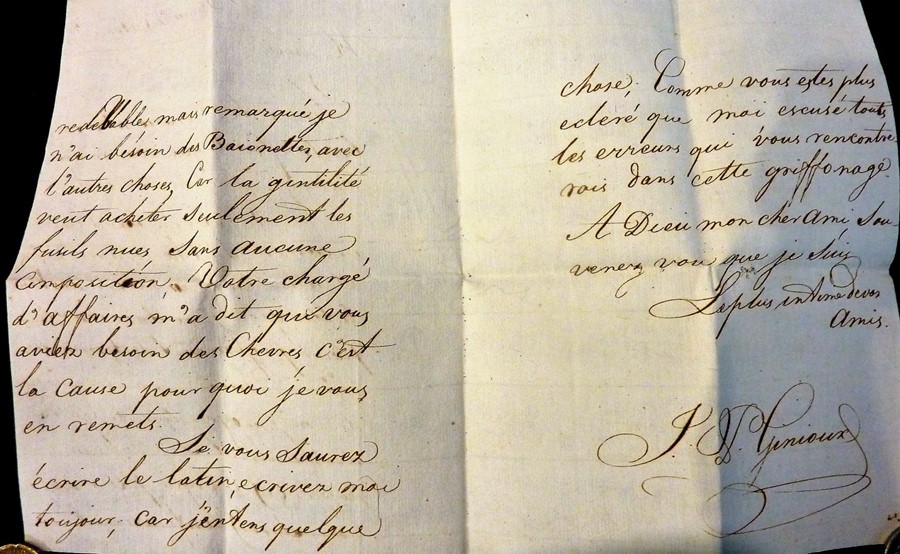 redevables mais remarqué je
n'ai bésoin des Baionettes, avec
l'autres choses, Car la gintilité
veut acheter seulement les
fusils nues sans aucune
Composition. Votre chargé
d'affaires m'a dit que vous
aviez besoin des Chevres c'est
la cause pour quoi je vous
en remets.
Si vous Saurez
écrire le latin, ecrivez moi
toujour, car j'entens quelque
chose, Comme vous estes plus
ecleré que moi escusé touts
les erreurs qui vous rencontre
rois dans cette griffonage.
A Dieu mon cher Ami Sou
venez vou que je suis
Le plus intime de vos
Amis.
J. Ginioux